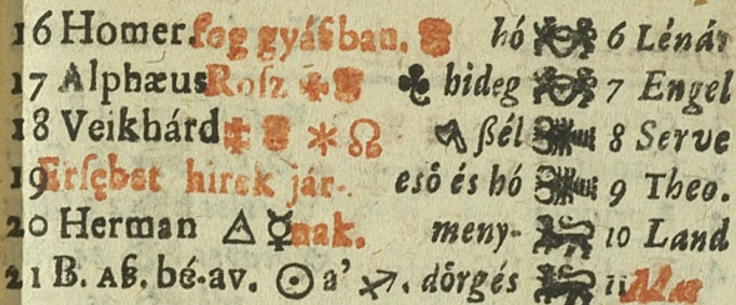 16 Homer. fog gyáßban. hó 6 Lénár
17 Alphæus Roſz hideg 7 Engel
18 Veikhárd ☊ ßél 8 Serve
19 Erſębet hirek jár- eső és hó 9 Theo.
20 Herman △ ☿ nak. meny- 10 Land
21 B. Aß. bé-av. ☉ a' ♐. dörgés 11